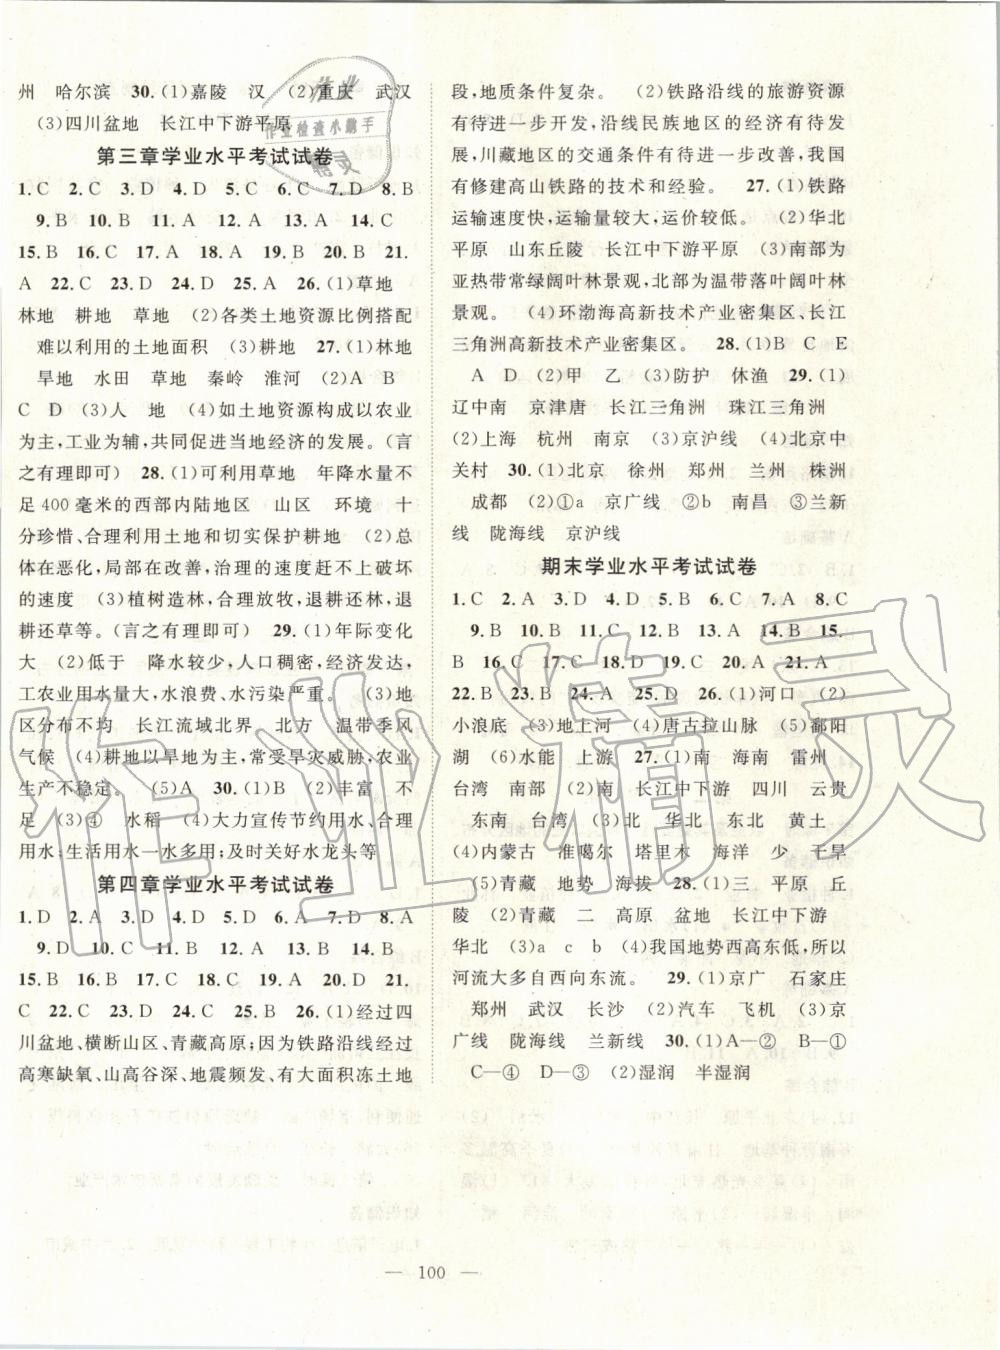 州 哈尔滨 30.(1)嘉陵 汉 (2)重庆 武汉
(3)四川盆地 长江中下游平原
第三章学业水平考试试卷
1.C 2.C 3.D 4.D 5.C 6.C 7.D 8.B
9.B 10.B 11.B 12.A 13.A 14.C
15.B 16.C 17.A 18.B 19.B 20.B 21.
A 22.C 23.D 24.D 25.A 26.(1)草地
林地 耕地 草地 (2)各类土地资源比例搭配
难以利用的土地面积 (3)耕地 27.(1)林地
旱地 水田 草地 秦岭 淮河 (2)A B
C D (3)人 地 (4)如土地资源构成以农业
为主,工业为辅,共同促进当地经济的发展。(言
之有理即可) 28.(1)可利用草地 年降水量不
足400毫米的西部内陆地区 山区 环境 十
分珍惜、合理利用土地和切实保护耕地 (2)总
体在恶化,局部在改善,治理的速度赶不上破坏
的速度 (3)植树造林,合理放牧,退耕还林,退
耕还草等。(言之有理即可) 29.(1)年际变化
大 (2)低于 降水较少,人口稠密,经济发达,
工农业用水量大,水浪费、水污染严重。 (3)地
区分布不均 长江流域北界 北方 温带季风
气候 (4)耕地以旱地为主,常受旱灾威胁,农业
生产不稳定。 (5)A 30.(1)B (2)丰富 不
足 (3)④ 水稻 (4)大力宣传节约用水、合理
用水;生活用水一水多用;及时关好水龙头等
第四章学业水平考试试卷
1.D 2.A 3.D 4.D 5.D 6.A 7.D 8.A
9.D 10.C 11.B 12.B 13.A 14.B
15.B 16.B 17.C 18.C 19.C 20.D 21.
C 22.C 23.D 24.D 25.B 26.(1)经过四
川盆地、横断山区、青藏高原;因为铁路沿线经过
高寒缺氧、山高谷深、地震频发、有大面积冻土地
段,地质条件复杂。 (2)铁路沿线的旅游资源
有待进一步开发,沿线民族地区的经济有待发
展,川藏地区的交通条件有待进一步改善,我国
有修建高山铁路的技术和经验。 27.(1)铁路
运输速度快,运输量较大,运价较低。 (2)华北
平原 山东丘陵 长江中下游平原 (3)南部为
亚热带常绿阔叶林景观,北部为温带落叶阔叶林
景观。 (4)环渤海高新技术产业密集区、长江
三角洲高新技术产业密集区。 28.(1)B C E
A D (2)甲 乙 (3)防护 休渔 29.(1)
辽中南 京津唐 长江三角洲 珠江三角洲
(2)上海 杭州 南京 (3)京沪线 (4)北京中
关村 30.(1)北京 徐州 郑州 兰州 株洲
成都 (2)①a 京广线 ②b 南昌 ③兰新
线 陇海线 京沪线
期末学业水平考试试卷
1.C 2.A 3.D 4.D 5.B 6.C 7.A 8.C
9.B 10.B 11.C 12.B 13.A 14.B 15.
B 16.C 17.C 18.D 19.C 20.A 21.A
22.B 23.B 24.B 25.A 26.(1)河口 (2)
小浪底 (3)地上河 (4)唐古拉山脉 (5)鄱阳
湖 (6)水能 上游 27.(1)南 海南 雷州
台湾 南部 (2)长江中下游 四川 云贵
东南 台湾 (3)北 华北 东北 黄土
(4)内蒙古 准噶尔 塔里木 海洋 少 干旱
(5)青藏 地势 海拔 28.(1)三 平原 丘
陵 (2)青藏 二 高原 盆地 长江中下游
华北 (3)a c b (4)我国地势西高东低,所以
河流大多自西向东流。 29.(1)京广 石家庄
郑州 武汉 长沙 (2)汽车 飞机 (3)京
广线 陇海线 兰新线 30.(1)A—② B—①
C—④ D—③ (2)湿润 半湿润
— 100 —
作业
作业检查小助手
精灵
作业精灵